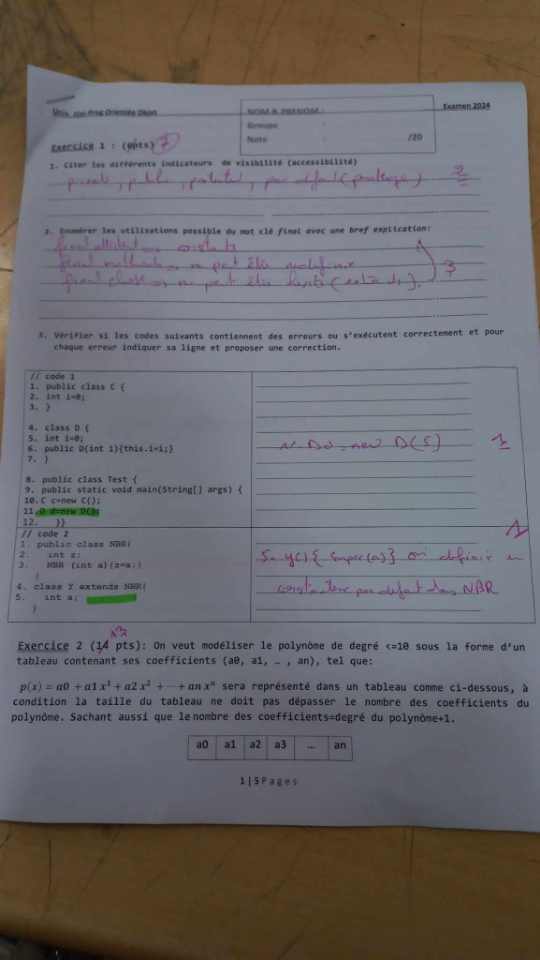 Prog Orientée Objet
NOM & PRENOM :
Groupe :
Note : /20
Examen 2024
Exercice 1 : (6pts) 7
1. Citer les différents indicateurs de visibilité (accessibilité)
private, public, protected, par défaut (package) 2
2. Enumérer les utilisations possible du mot clé final avec une bref explication:
final attribut
final méthode ne peut être
final class ne peut être 3
3. Vérifier si les codes suivants contiennent des erreurs ou s'exécutent correctement et pour
chaque erreur indiquer sa ligne et proposer une correction.
// code 1
1. public class C {
2. int i=0;
3. }
4. class D {
5. int i=0;
6. public D(int i){this.i=i;}
7. }
8. public class Test {
9. public static void main(String[] args) {
10.C c=new C();
11.D d=new D();
12. }}
new D(5) 1
// code 2
1. public class NBR{
2. int z;
3. NBR (int a){z=a;}
}
4. class Y extends NBR{
5. int a;
}
5 Y(){super(a)} ou définir un 1
constructeur par défaut dans NBR
Exercice 2 (14 pts): On veut modéliser le polynôme de degré <=10 sous la forme d'un 13
tableau contenant ses coefficients (a0, a1, … , an), tel que:
p(x) = a0 + a1 x¹ + a2 x² + ⋯ + an xⁿ sera représenté dans un tableau comme ci-dessous, à
condition la taille du tableau ne doit pas dépasser le nombre des coefficients du
polynôme. Sachant aussi que le nombre des coefficients=degré du polynôme+1.
a0 a1 a2 a3 … an
1|5Pages